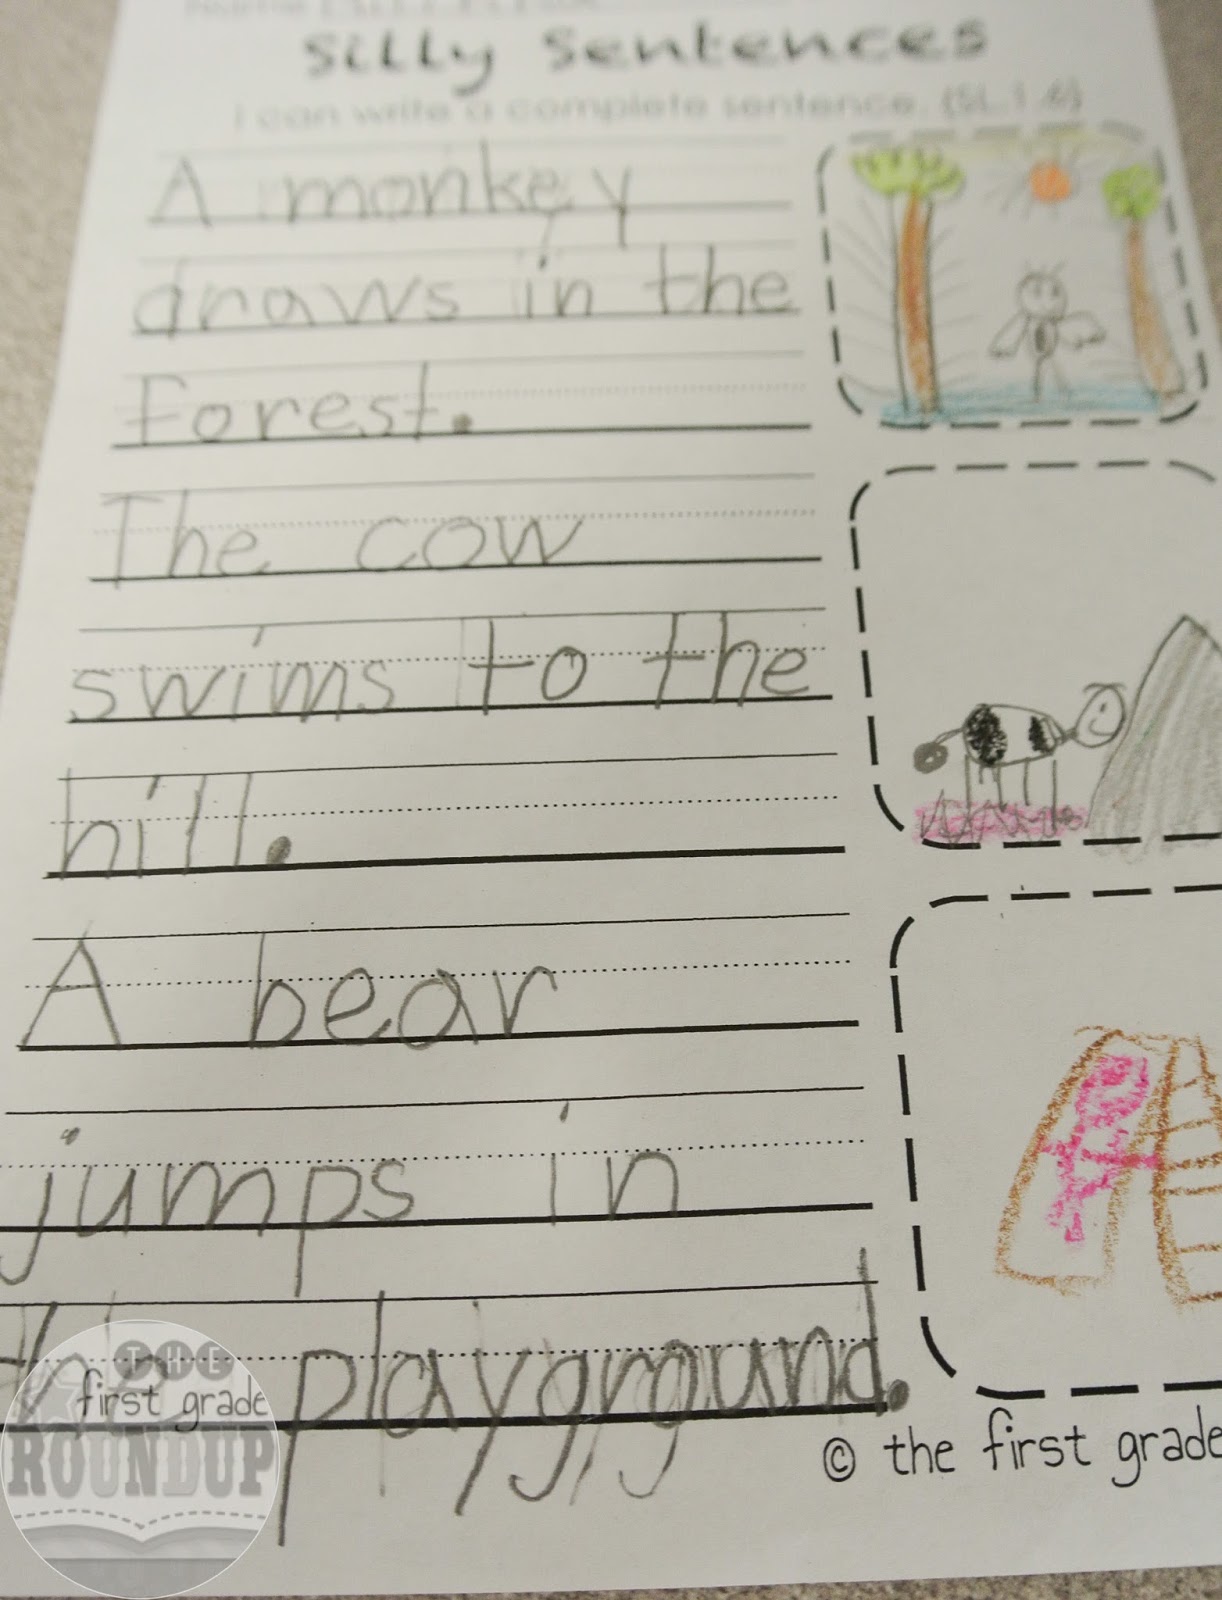 silly sentences
I can write a complete sentence. (SL.1.6)
A monkey
draws in the
forest.
The cow
swims to the
hill.
A bear
jumps in
the playground.
THE
first grade
ROUNDUP
© the first grade